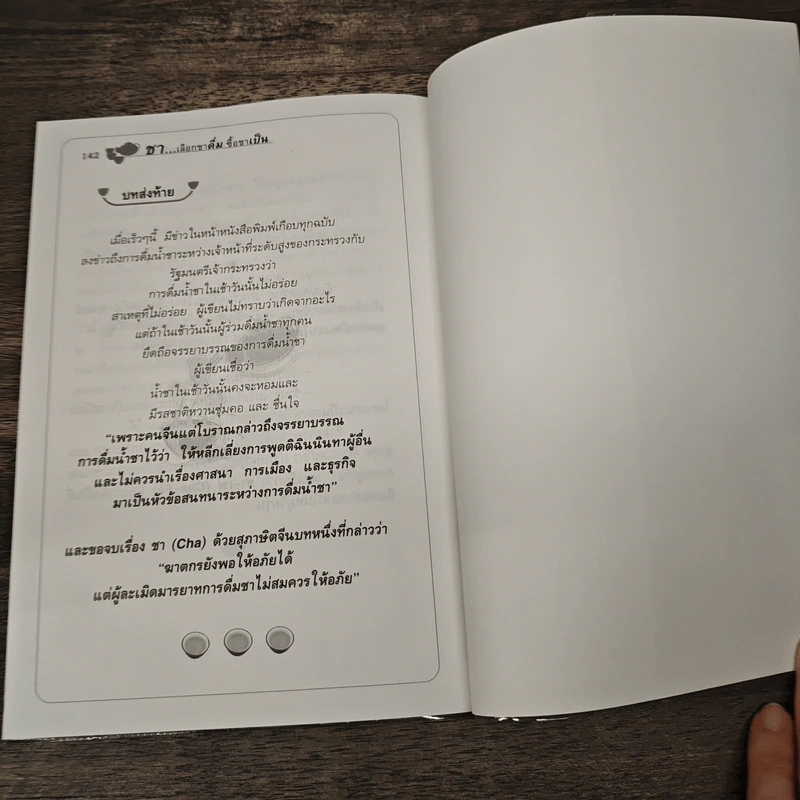 142 ชา...เลือกชาดื่ม ซื้อชาเป็น
บทส่งท้าย
เมื่อเร็วๆนี้ มีข่าวในหน้าหนังสือพิมพ์เกือบทุกฉบับ
ลงข่าวถึงการดื่มน้ำชาระหว่างเจ้าหน้าที่ระดับสูงของกระทรวงกับ
รัฐมนตรีเจ้ากระทรวงว่า
การดื่มน้ำชาในเช้าวันนั้นไม่อร่อย
สาเหตุที่ไม่อร่อย ผู้เขียนไม่ทราบว่าเกิดจากอะไร
แต่ถ้าในเช้าวันนั้นผู้ร่วมดื่มน้ำชาทุกคน
ยึดถือจรรยาบรรณของการดื่มน้ำชา
ผู้เขียนเชื่อว่า
น้ำชาในเช้าวันนั้นคงจะหอมและ
มีรสชาติหวานชุ่มคอ และ ชื่นใจ
“เพราะคนจีนแต่โบราณกล่าวถึงจรรยาบรรณ
การดื่มน้ำชาไว้ว่า ให้หลีกเลี่ยงการพูดติฉินนินทาผู้อื่น
และไม่ควรนำเรื่องศาสนา การเมือง และธุรกิจ
มาเป็นหัวข้อสนทนาระหว่างการดื่มน้ำชา”
และขอจบเรื่อง ชา (Cha) ด้วยสุภาษิตจีนบทหนึ่งที่กล่าวว่า
“ฆาตกรยังพอให้อภัยได้
แต่ผู้ละเมิดมารยาทการดื่มชาไม่สมควรให้อภัย”